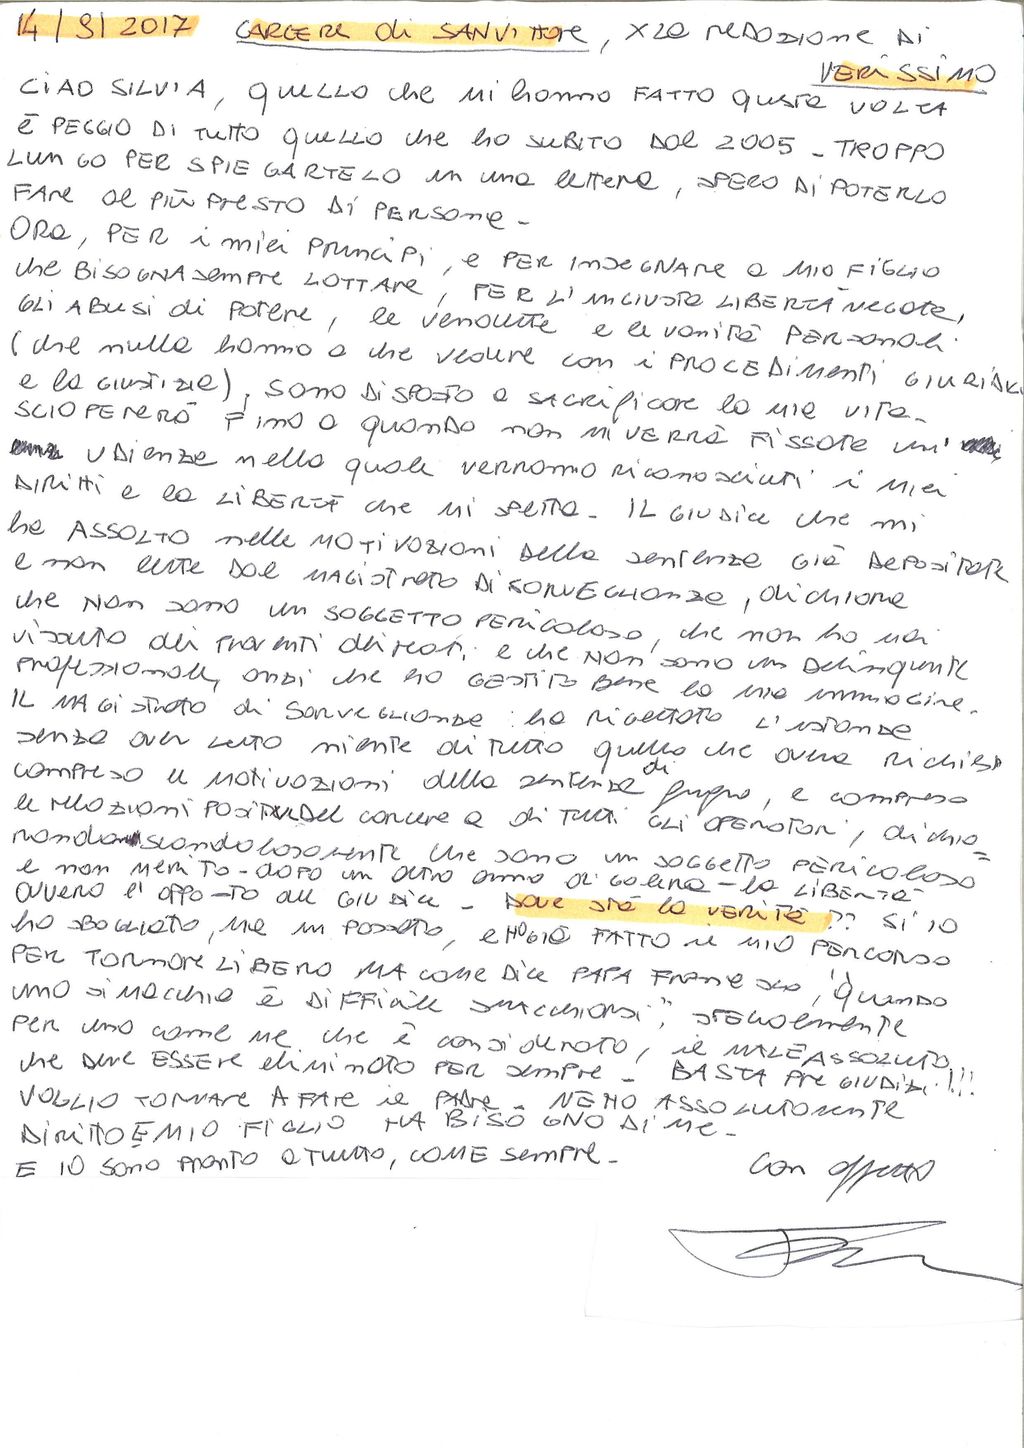 14/9/2017 CARCERE di SANVITTORE, X la REDAZIONE DI
VERISSIMO
CIAO SILVIA, quello che mi hanno FATTO questa VOLTA
È PEGGIO DI TUTTO quello che ho SUBITO DAL 2005 - TROPPO
LUNGO PER SPIEGARTELO in una lettera, SPERO DI POTERLO
FARE al PIÙ PRESTO DI PERSONA -
ORA, PER i miei PRINCIPI, e PER INSEGNARE a MIO FIGLIO
che BISOGNA sempre LOTTARE, PER L'INGIUSTA LIBERTÀ NEGATA,
GLI ABUSI di POTERE, le vendette e le vanità PERSONALI
(che nulla hanno a che vedere con i PROCEDIMENTI GIURIDICI
e la GIUSTIZIA), SONO DISPOSTO a SACRIFICARE la MIA VITA -
SCIOPERERÒ FINO a quando non MI VERRÀ FISSATA UN'
UDIENZA nella quale verranno RICONOSCIUTI i MIEI
DIRITTI e la LIBERTÀ che MI SPETTA - IL GIUDICE che mi
ha ASSOLTO nelle MOTIVAZIONI della sentenza GIÀ DEPOSITATE
e non lette DAL MAGISTRATO DI SORVEGLIANZA, dichiara
che NON sono un SOGGETTO PERICOLOSO, che non ho mai
vissuto dei PROVENTI di reati, e che NON sono un DELINQUENTE
PROFESSIONALE, anzi che ho GESTITO BENE la mia immagine.
IL MAGISTRATO di SORVEGLIANZA ha RIGETTATO L'ISTANZA
senza aver LETTO niente di TUTTO quello che aveva RICHIESTO
compreso le MOTIVAZIONI della sentenza di giugno, e compreso
le RELAZIONI POSITIVE DEL carcere e di TUTTI GLI OPERATORI, dichia=
rando scandalosamente che sono un SOGGETTO PERICOLOSO
e non MERITO - DOPO un altro anno di galera - la LIBERTÀ
ovvero l'opposto del GIUDICE - DOVE STÀ la VERITÀ ?? SI IO
ho SBAGLIATO, ma in PASSATO, e HO GIÀ FATTO il MIO PERCORSO
PER TORNARE LIBERO MA COME DICE PAPA FRANCESCO, "QUANDO
UNO SI MACCHIA È DIFFICILE SMACCHIARSI", SPECIALMENTE
PER UNO come me che è considerato, il MALE ASSOLUTO
che DEVE ESSERE eliminato PER sempre - BASTA PREGIUDIZI!!!
VOGLIO TORNARE A FARE il PADRE - NE HO ASSOLUTAMENTE
DIRITTO E MIO FIGLIO HA BISOGNO DI ME -
E IO SONO PRONTO a TUTTO, COME sempre -
Con affetto